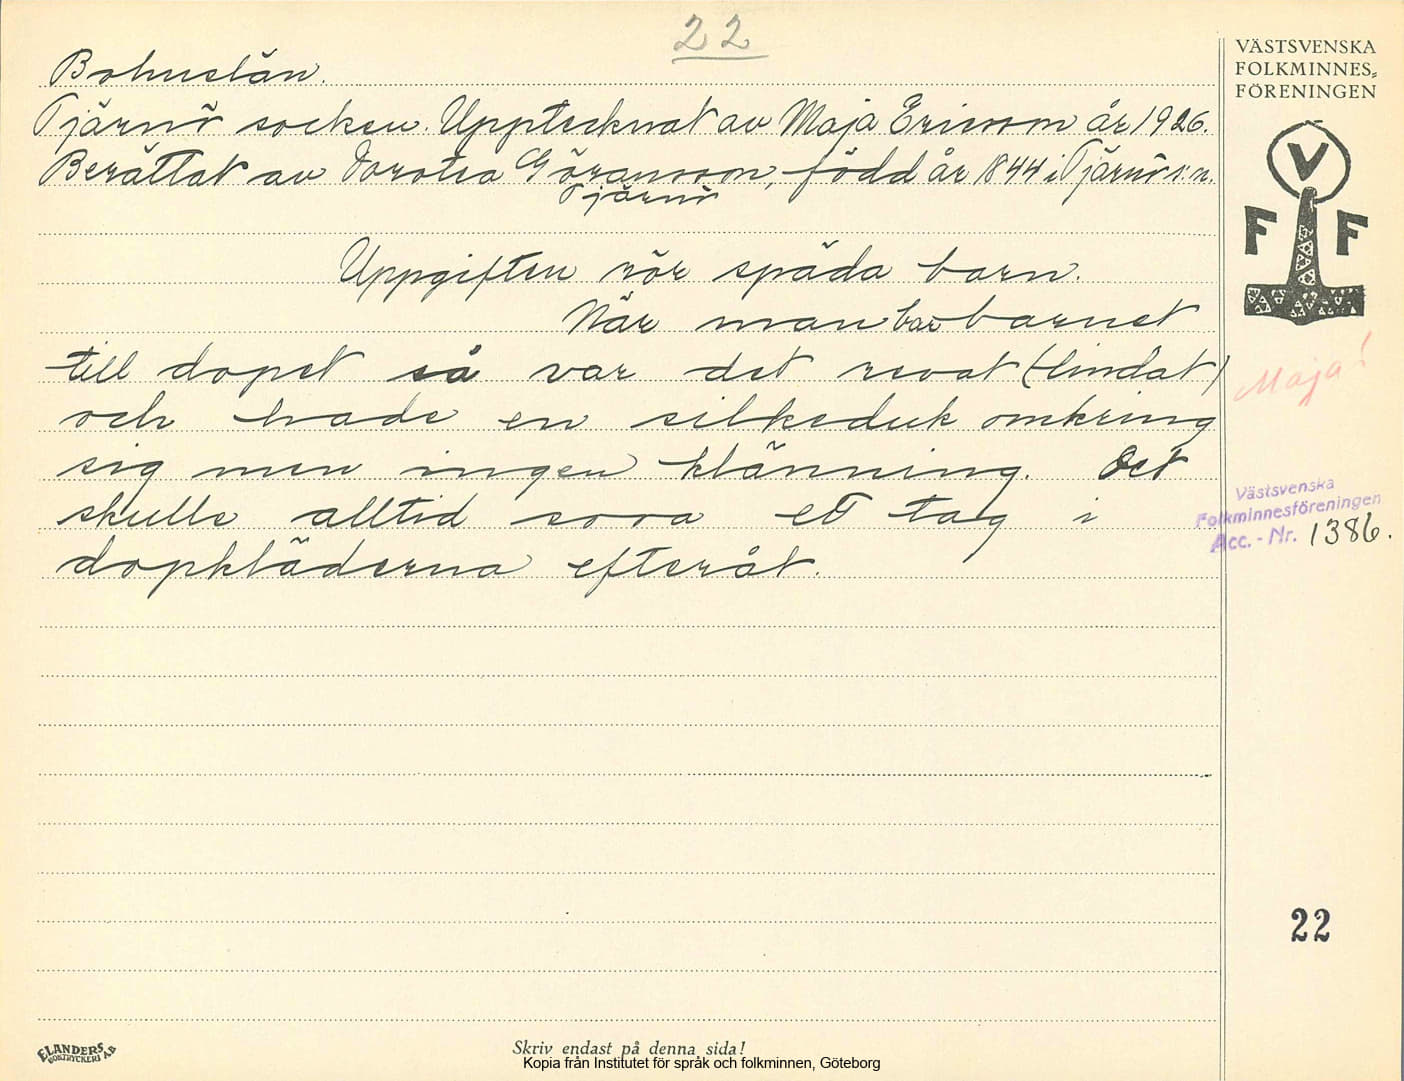 22
Bohuslän.
Tjärnö socken. Upptecknat av Maja Ericson år 1926.
Berättat av Dorotea Göransson, född år 1844 i Tjärnö s:n.
Tjärnö
Uppgiften rör späda barn.
När man bar barnet
till dopet så var det revat (lindat)
och hade en silkeduk omkring
sig men ingen klänning. Det
skulle alltid sova ett tag i
dopkläderna efteråt.
VÄSTSVENSKA
FOLKMINNES=
FÖRENINGEN
V
F F
Maja!
Västsvenska
Folkminnesföreningen
Acc. - Nr. 1386.
22
ELANDERS
BOKTRYCKERI A.B
Skriv endast på denna sida!
Kopia från Institutet för språk och folkminnen, Göteborg